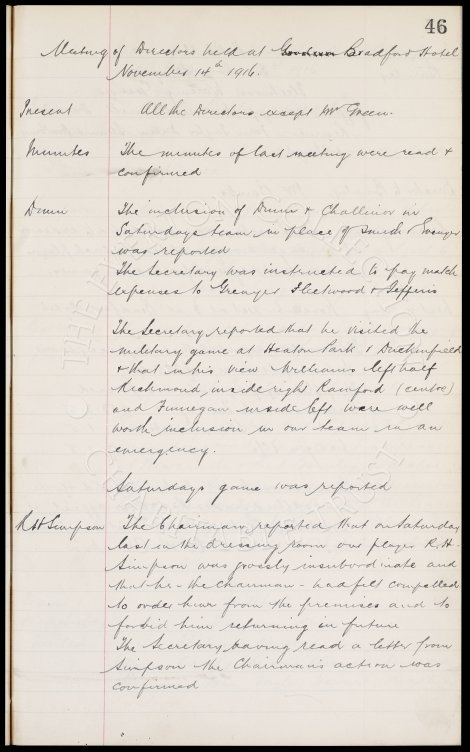 46
Meeting of Directors held at Bradford Hotel
November 14th 1916.
Present All the Directors except Mr Green.
Minutes The minutes of last meeting were read &
confirmed
Dunn The inclusion of Dunn & Challinor in
Saturdays team in place of &
was reported
The Secretary was instructed to pay match
expenses to Granger Fleetwood & Jefferis
The Secretary reported that he visited the
military game at Heaton Park & Duckinfield
& that in his view Williams left half
Richmond inside right Rainford (centre)
and Finnegan inside left were well
worth inclusion in our team in an
emergency.
Saturdays game was reported
R H Simpson The Chairman reported that on Saturday
last in the dressing room our player R. H.
Simpson was grossly insubordinate and
that he - the Chairman - had felt compelled
to order him from the premises and to
forbid him returning in future
The Secretary having read a letter from
Simpson the Chairmans action was
confirmed